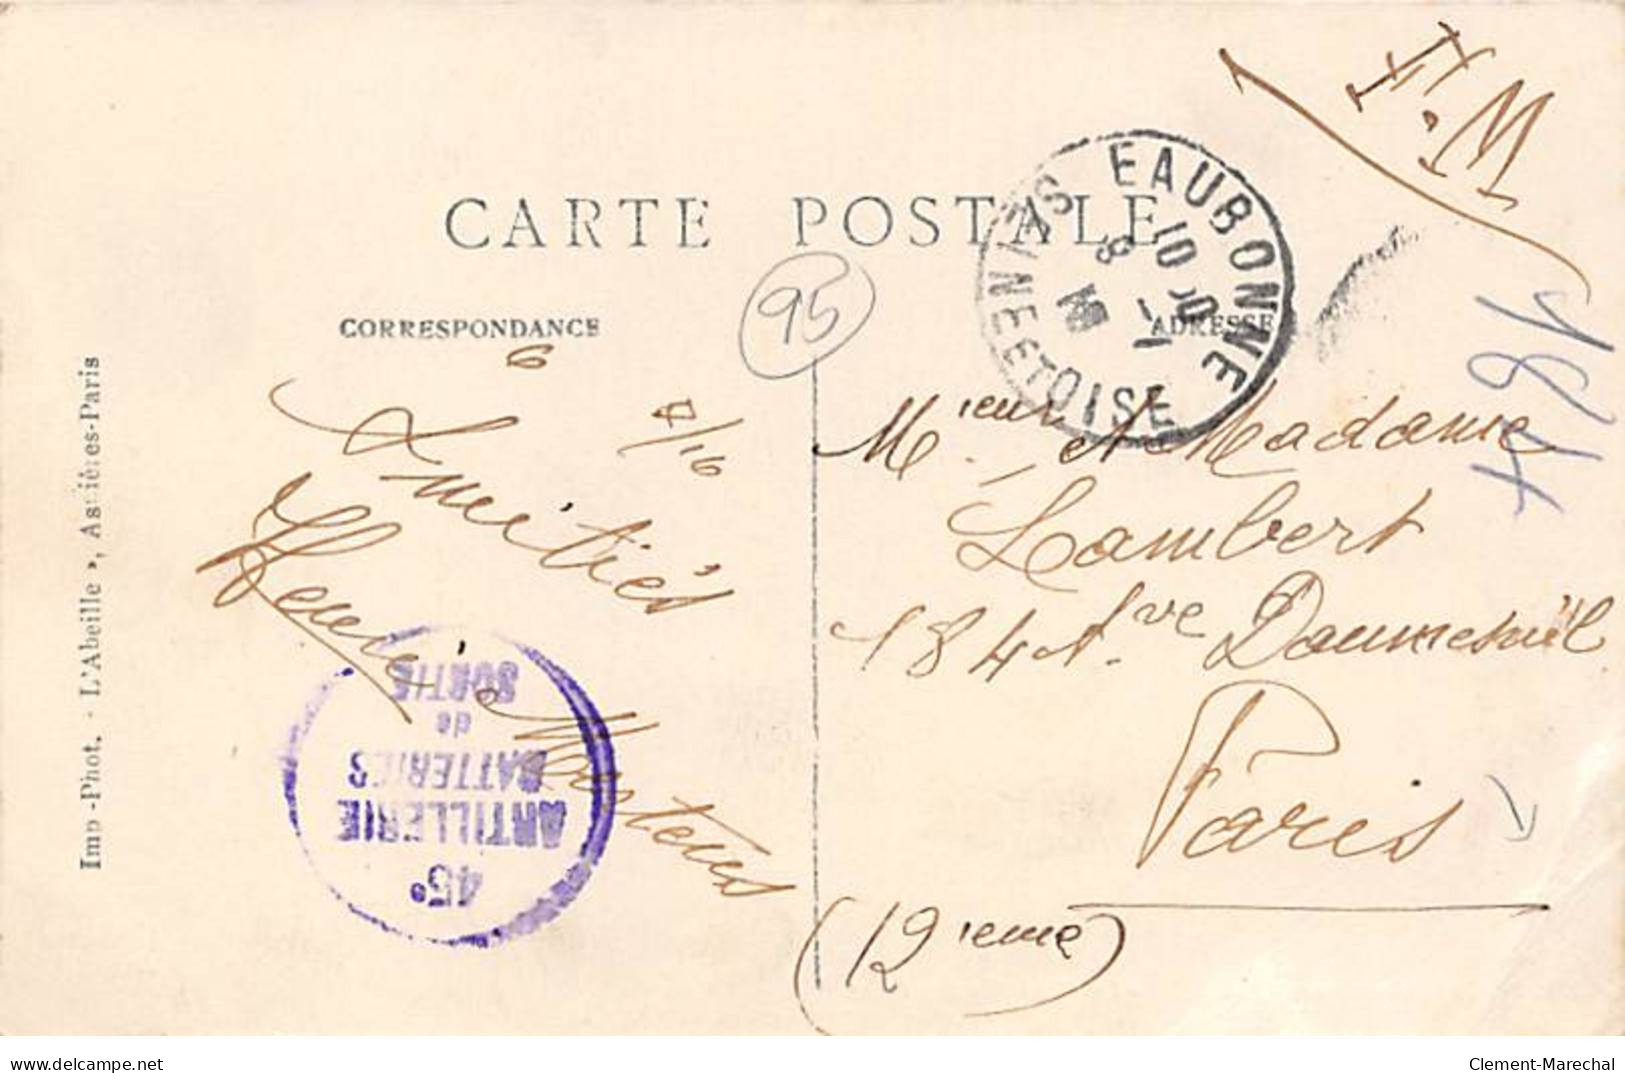 F.M.
CARTE POSTALE
95
CORRESPONDANCE
ADRESSE
EAUBONNE
10
8 - 1
SEINE ET OISE
7/16
Amitiés
Mieur et Madame
Lambert
184 Ave Daumesnil
Paris
(12ieme)
184
45e
ARTILLERIE
BATTERIES
de
SORTIE
Imp-Phot. - L'Abeille », Asnières-Paris
delcampe.net
Clement-Marechal